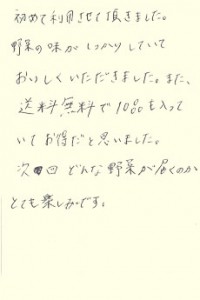 初めて利用させて頂きました。
野菜の味がしっかりしていて
おいしくいただきました。また、
送料無料で10品も入って
いてお得だと思いました。
次回どんな野菜が届くのか
とても楽しみです。